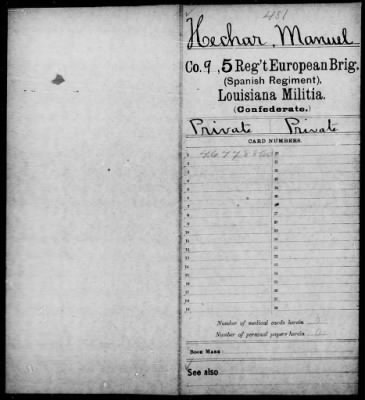 431
Hechar, Manuel
Co. 9, 5 Reg't European Brig.
(Spanish Regiment),
Louisiana Militia.
(Confederate.)
Private Private
CARD NUMBERS.
Number of medical cards herein 0
Number of personal papers herein 0
BOOK MARK:
See also